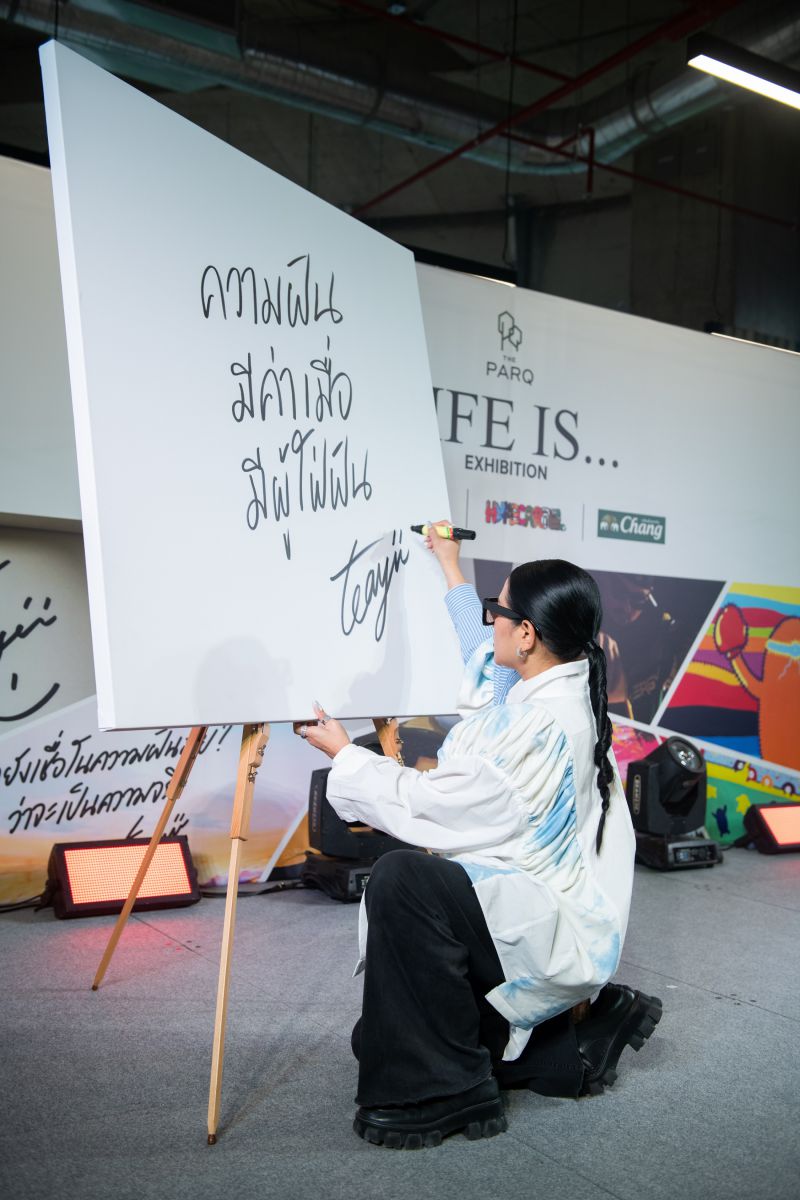 ความฝัน
มีค่าเมื่อ
มีผู้ใฝ่ฝัน
teayii
THE
PARQ
IFE IS...
EXHIBITION
HYPECANDLE
Chang
ยังเชื่อในความฝัน
ว่าจะเป็นความจริง